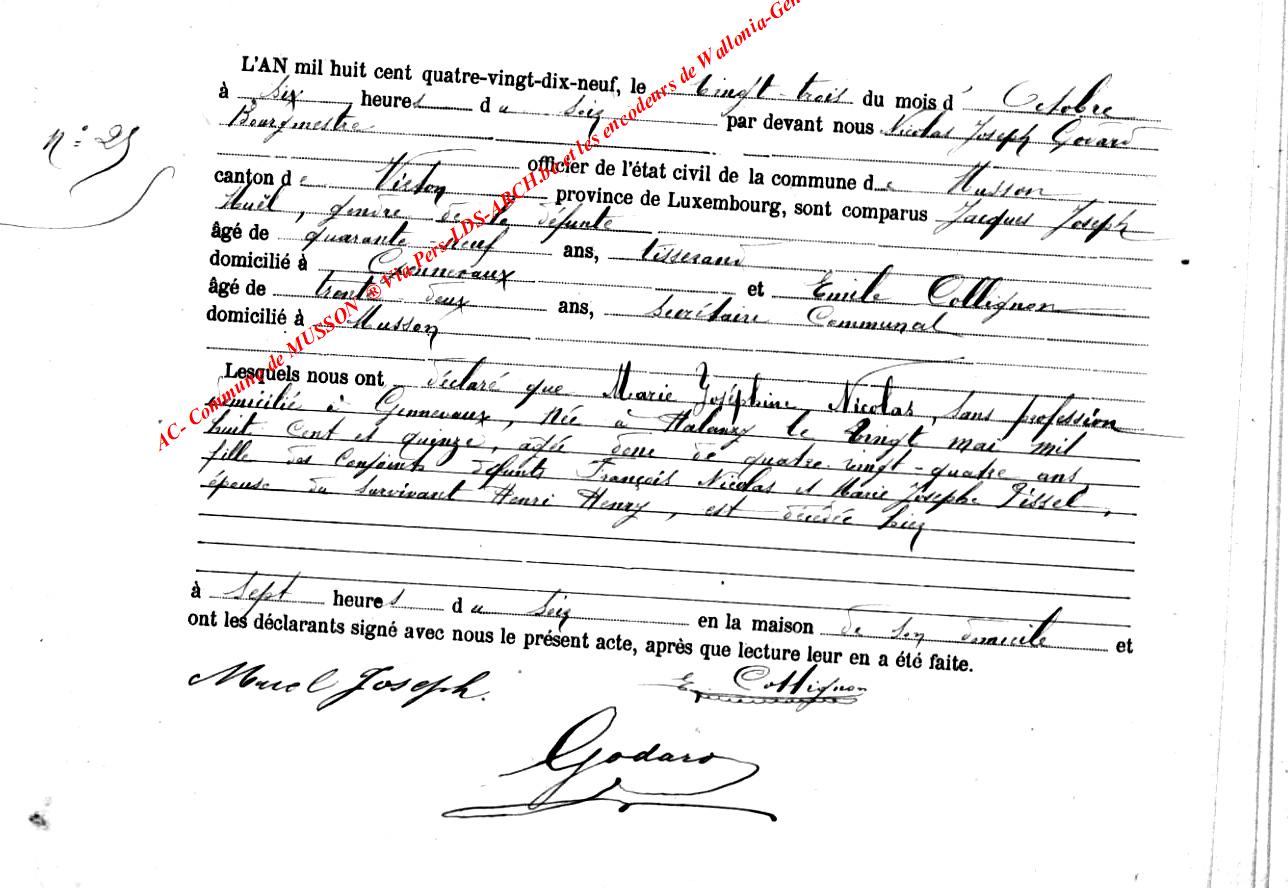 L'AN mil huit cent quatre-vingt-dix-neuf, le vingt-trois du mois d' Octobre
à six heures du soir par devant nous Nicolas Joseph Godard
Bourgmestre
officier de l'état civil de la commune de Musson
canton de Virton province de Luxembourg, sont comparus Jacques Joseph
gendre de la défunte
âgé de quarante-neuf ans, tisserand
domicilié à Gennevaux et Emile Collignon
âgé de trente-deux ans, Secrétaire Communal
domicilié à Musson
Lesquels nous ont déclaré que Marie Joséphine Nicolas, sans profession
domiciliée à Gennevaux, née à Halanzy le vingt mai mil
huit cent et quinze, agée donc de quatre-vingt-quatre ans,
fille des conjoints défunts François Nicolas et Marie Josèphe Pissel,
épouse du survivant Henri Henry, est décédée hier
à sept heures du soir en la maison de son domicile et
ont les déclarants signé avec nous le présent acte, après que lecture leur en a été faite.
Joseph. E. Collignon
Godard
N° 25
AC- Commune de MUSSON ® Via Pers-LDS-ARCH.be et les encodeurs de Wallonia-Gen